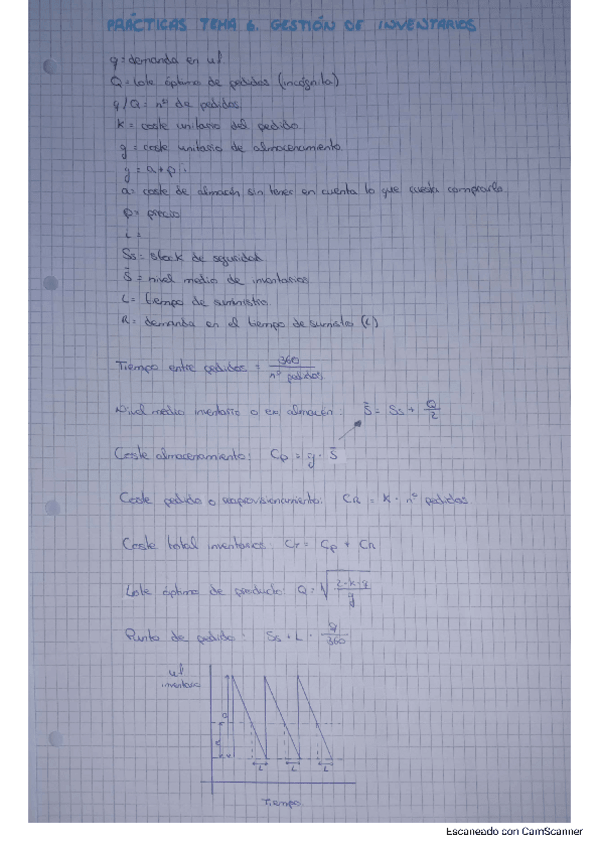 PRÁCTICAS TEMA 6. GESTIÓN DE INVENTARIOS
q = demanda en uf
Q = Lote óptimo de pedidos (incógnita)
q/Q = nº de pedidos
K = coste unitario del pedido
g = coste unitario de almacenamiento
y = a + p
a = coste de almacén sin tener en cuenta lo que cuesta comprarlo
p = precio
i =
Ss = stock de seguridad
S̄ = nivel medio de inventarios
L = tiempo de suministro
R = demanda en el tiempo de sumistro (L)
Tiempo entre pedidos = 360 / nº pedidos
Nivel medio inventario o en almacén: S̄ = Ss + Q/2
Coste almacenamiento: Cp = g · S̄
Coste pedido o reaprovisionamiento: CR = K · nº pedidos
Coste total inventarios: CT = Cp + CR
Lote óptimo de producto: Q = √(2·k·q / g)
Punto de pedido: Ss + L · q/360
uf
inventario
L L L
Tiempo
Escaneado con CamScanner